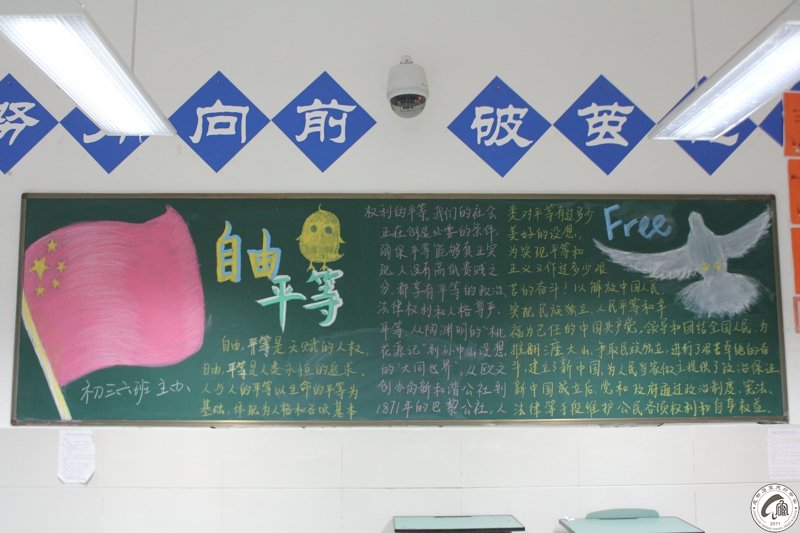 努
向
前
破
茧
自由
平等
Free
自由,平等是天赋的人权,
自由,平等是人类永恒的追求,
人与人的平等以生命的平等为
基础,体现为人格和各项基本
权利的平等,我们的社会
正在创造必要的条件,
确保平等能够真正实
现,人没有高低贵贱之
分,都享有平等的政治
法律权利和人格尊严,
平等,从陶渊明的“桃
花源记”到孙中山设想
的“大同世界”,从欧文
创办的新和谐公社到
1871年的巴黎公社,人
类对平等有过多少
美好的设想,
为实现平等和
正义又作过多少艰
苦的奋斗!以解放中国人民,
实现民族独立,人民平等和幸
福为己任的中国共产党,领导和团结全国人民,为
推翻三座大山,争取民族独立,进行了艰苦卓绝的奋
斗,建立了新中国,为人民当家做主提供了政治保证
新中国成立后,党和政府通过政治制度、宪法、
法律等手段维护公民各项权利和自身权益
初三六班 主办
2011